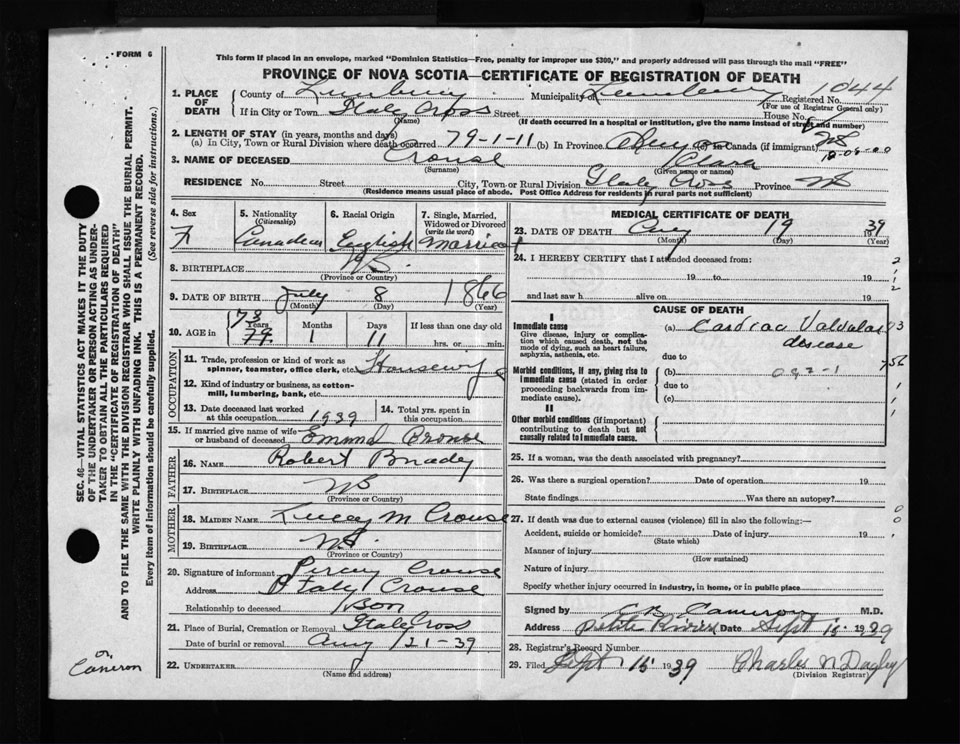 FORM 6
This form if placed in an envelope, marked "Dominion Statistics—Free, penalty for improper use $300," and properly addressed will pass through the mail "FREE"
PROVINCE OF NOVA SCOTIA—CERTIFICATE OF REGISTRATION OF DEATH
1. PLACE OF DEATH
County of Lunenburg Municipality of Lunenburg Registered No. 1044
(For use of Registrar General only)
If in City or Town Italy Cross Street House No.
(Name) (If death occurred in a hospital or institution, give the name instead of street and number)
2. LENGTH OF STAY (in years, months and days)
(a) In City, Town or Rural Division where death occurred 79-1-11 (b) In Province (c) In Canada (if immigrant)
3. NAME OF DECEASED Crouse Clara
(Surname) (Given name or names)
RESIDENCE No. Street City, Town or Rural Division Italy Cross Province NS
(Residence means usual place of abode. Post Office Address for residents in rural parts not sufficient)
4. Sex F
5. Nationality (Citizenship) Canadian
6. Racial Origin English
7. Single, Married, Widowed or Divorced (write the word) Married
8. BIRTHPLACE NS.
(Province or Country)
9. DATE OF BIRTH July 8 1866
(Month) (Day) (Year)
10. AGE in 73 79 Years 1 Months 11 Days If less than one day old
hrs. or min.
OCCUPATION
11. Trade, profession or kind of work as spinner, teamster, office clerk, etc. Housewife
12. Kind of industry or business, as cotton-mill, lumbering, bank, etc.
13. Date deceased last worked at this occupation 1939
14. Total yrs. spent in this occupation
15. If married give name of wife or husband of deceased Crouse
FATHER
16. NAME Robert
17. BIRTHPLACE NS
(Province or Country)
MOTHER
18. MAIDEN NAME M Crouse
19. BIRTHPLACE NS.
(Province or Country)
20. Signature of informant Percy Crouse
Address Italy Crouse
Relationship to deceased Son
21. Place of Burial, Cremation or Removal Italy Cross
Date of burial or removal Aug 21-39
22. UNDERTAKER
(Name and address)
MEDICAL CERTIFICATE OF DEATH
23. DATE OF DEATH Aug 19 39
(Month) (Day) (Year)
24. I HEREBY CERTIFY that I attended deceased from:
19 to 19
and last saw h alive on 19
CAUSE OF DEATH
I
Immediate cause
Give disease, injury or complication which caused death, not the mode of dying, such as heart failure, asphyxia, asthenia, etc.
(a) Cardiac Valvular disease
due to
Morbid conditions, if any, giving rise to Immediate cause (stated in order proceeding backwards from immediate cause).
(b) 092-1
due to
(c)
II
Other morbid conditions (if important) contributing to death but not causally related to immediate cause.
25. If a woman, was the death associated with pregnancy?
26. Was there a surgical operation? Date of operation 19
State findings Was there an autopsy?
27. If death was due to external causes (violence) fill in also the following:—
Accident, suicide or homicide? Date of injury 19
(State which)
Manner of injury
(How sustained)
Nature of injury
Specify whether injury occurred in industry, in home, or in public place
Signed by C B Cameron M.D.
Address Petite Riviere Date Sept 15 1939
28. Registrar's Record Number
29. Filed Sept 15 1939 Charles N Dagley
(Division Registrar)
SEC. 46—VITAL STATISTICS ACT MAKES IT THE DUTY
OF THE UNDERTAKER OR PERSON ACTING AS UNDER-
TAKER TO OBTAIN ALL THE PARTICULARS REQUIRED
IN THE "CERTIFICATE OF REGISTRATION OF DEATH"
AND TO FILE THE SAME WITH THE DIVISION REGISTRAR WHO SHALL ISSUE THE BURIAL PERMIT.
WRITE PLAINLY WITH UNFADING INK. THIS IS A PERMANENT RECORD.
Every item of information should be carefully supplied. (See reverse side for instructions.)
Dr.
Cameron